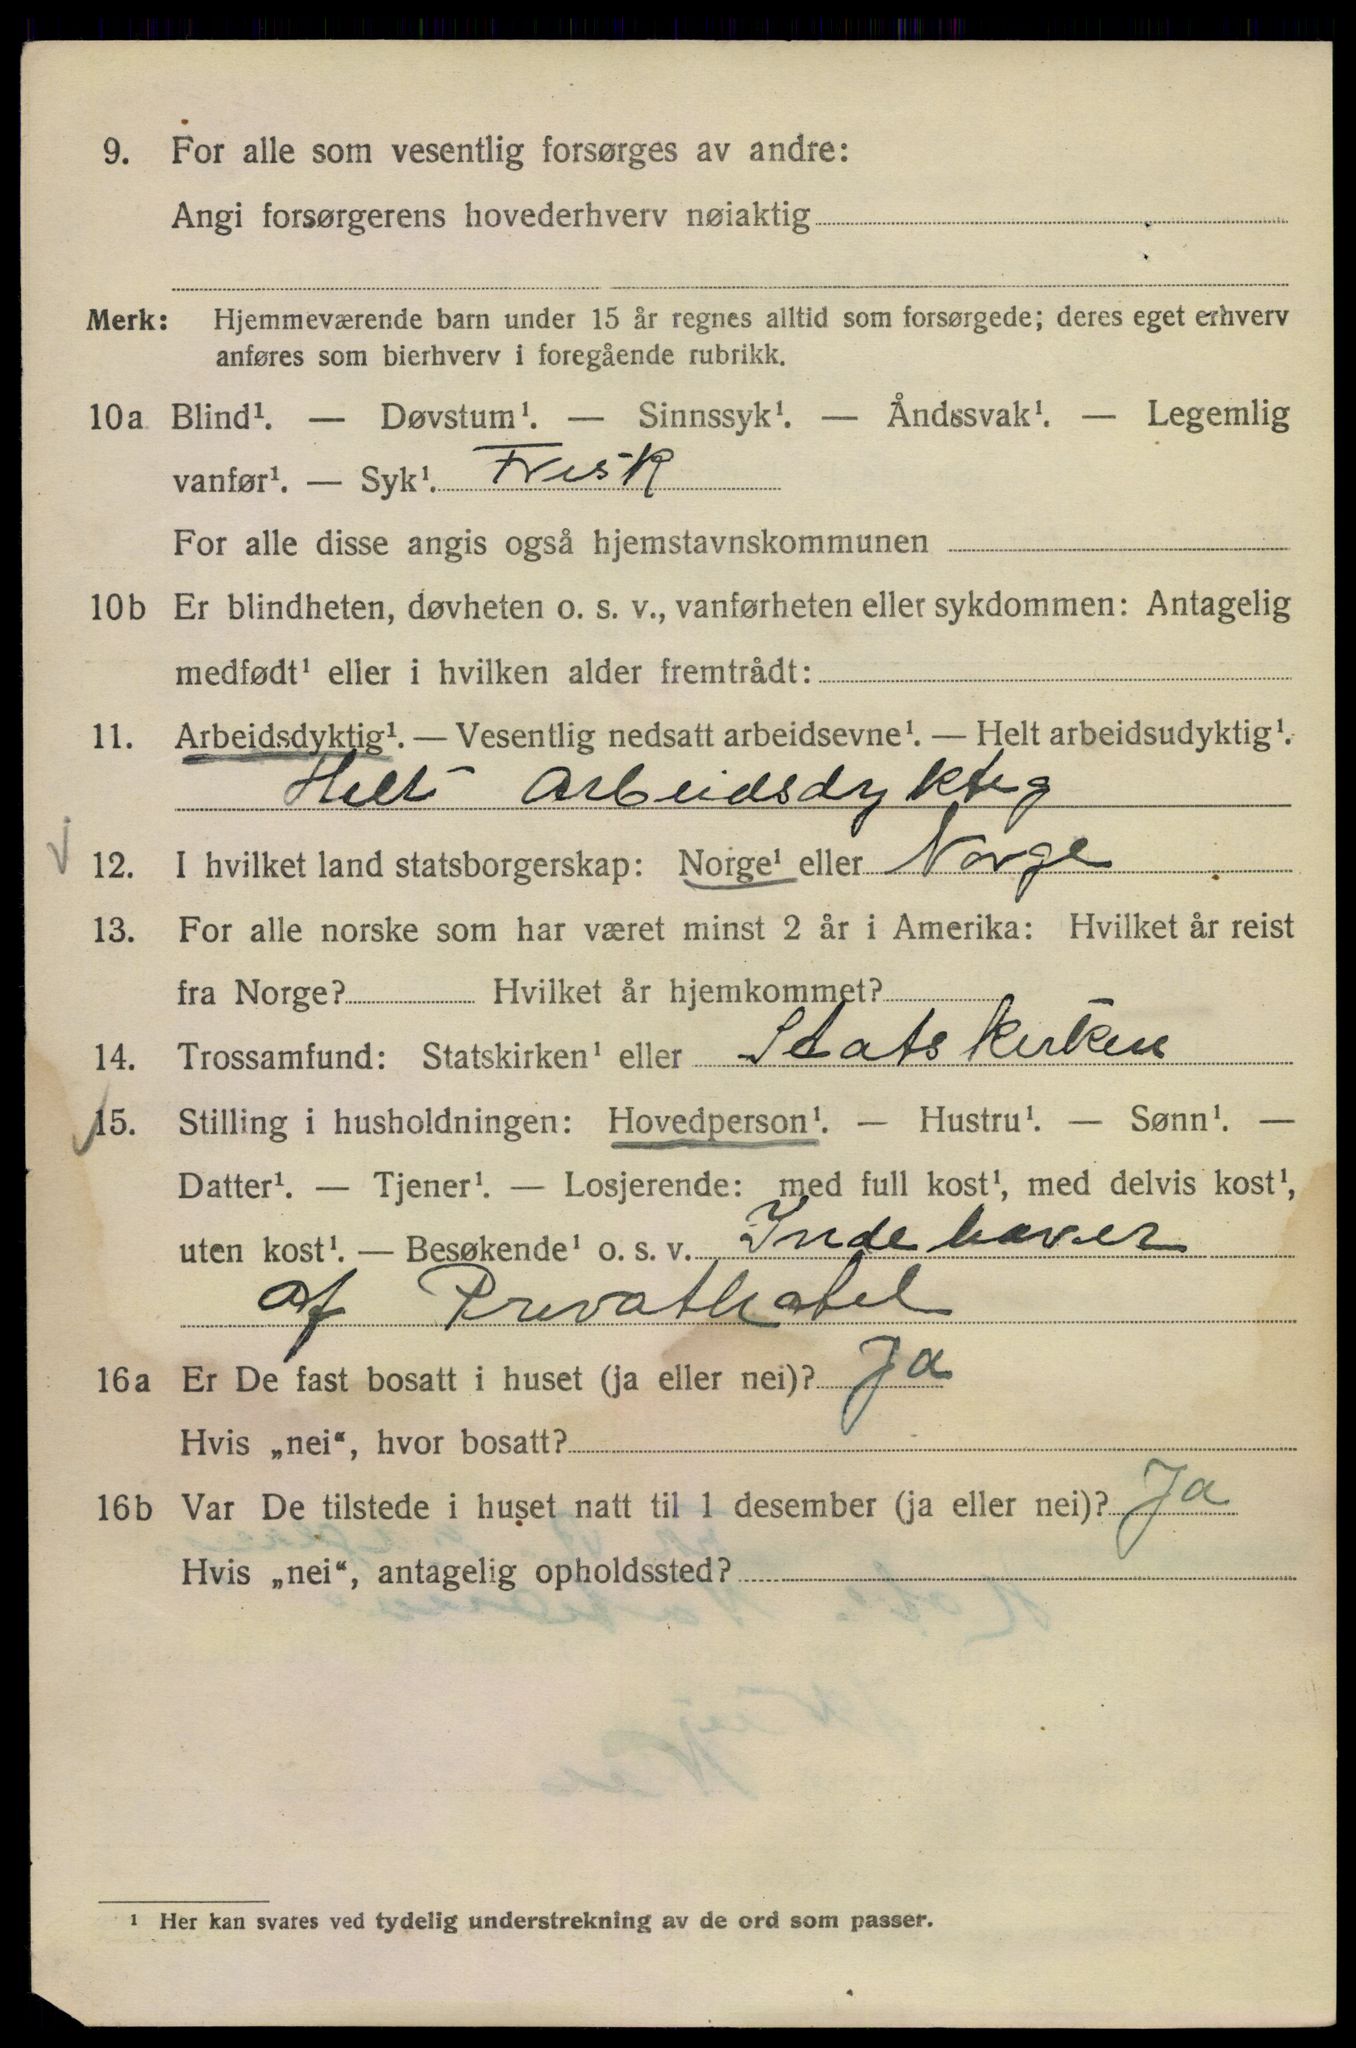 9. For alle som vesentlig forsørges av andre:
Angi forsørgerens hovederhverv nøiaktig
Merk: Hjemmeværende barn under 15 år regnes alltid som forsørgede; deres eget erhverv
anføres som bierhverv i foregående rubrikk.
10a Blind¹. — Døvstum¹. — Sinnssyk¹. — Åndssvak¹. — Legemlig
vanfør¹. — Syk¹. Frisk
For alle disse angis også hjemstavnskommunen
10b Er blindheten, døvheten o. s. v., vanførheten eller sykdommen: Antagelig
medfødt¹ eller i hvilken alder fremtrådt:
11. Arbeidsdyktig¹. — Vesentlig nedsatt arbeidsevne¹. — Helt arbeidsudyktig¹.
Helt Arbeidsdyktig
12. I hvilket land statsborgerskap: Norge¹ eller Norge
13. For alle norske som har været minst 2 år i Amerika: Hvilket år reist
fra Norge? Hvilket år hjemkommet?
14. Trossamfund: Statskirken¹ eller Statskirken
15. Stilling i husholdningen: Hovedperson¹. — Hustru¹. — Sønn¹. —
Datter¹. — Tjener¹. — Losjerende: med full kost¹, med delvis kost¹,
uten kost¹. — Besøkende¹ o. s. v. Indehaver
af Privathotel
16a Er De fast bosatt i huset (ja eller nei)? Ja
Hvis „nei“, hvor bosatt?
16b Var De tilstede i huset natt til 1 desember (ja eller nei)? Ja
Hvis „nei“, antagelig opholdssted?
¹ Her kan svares ved tydelig understrekning av de ord som passer.